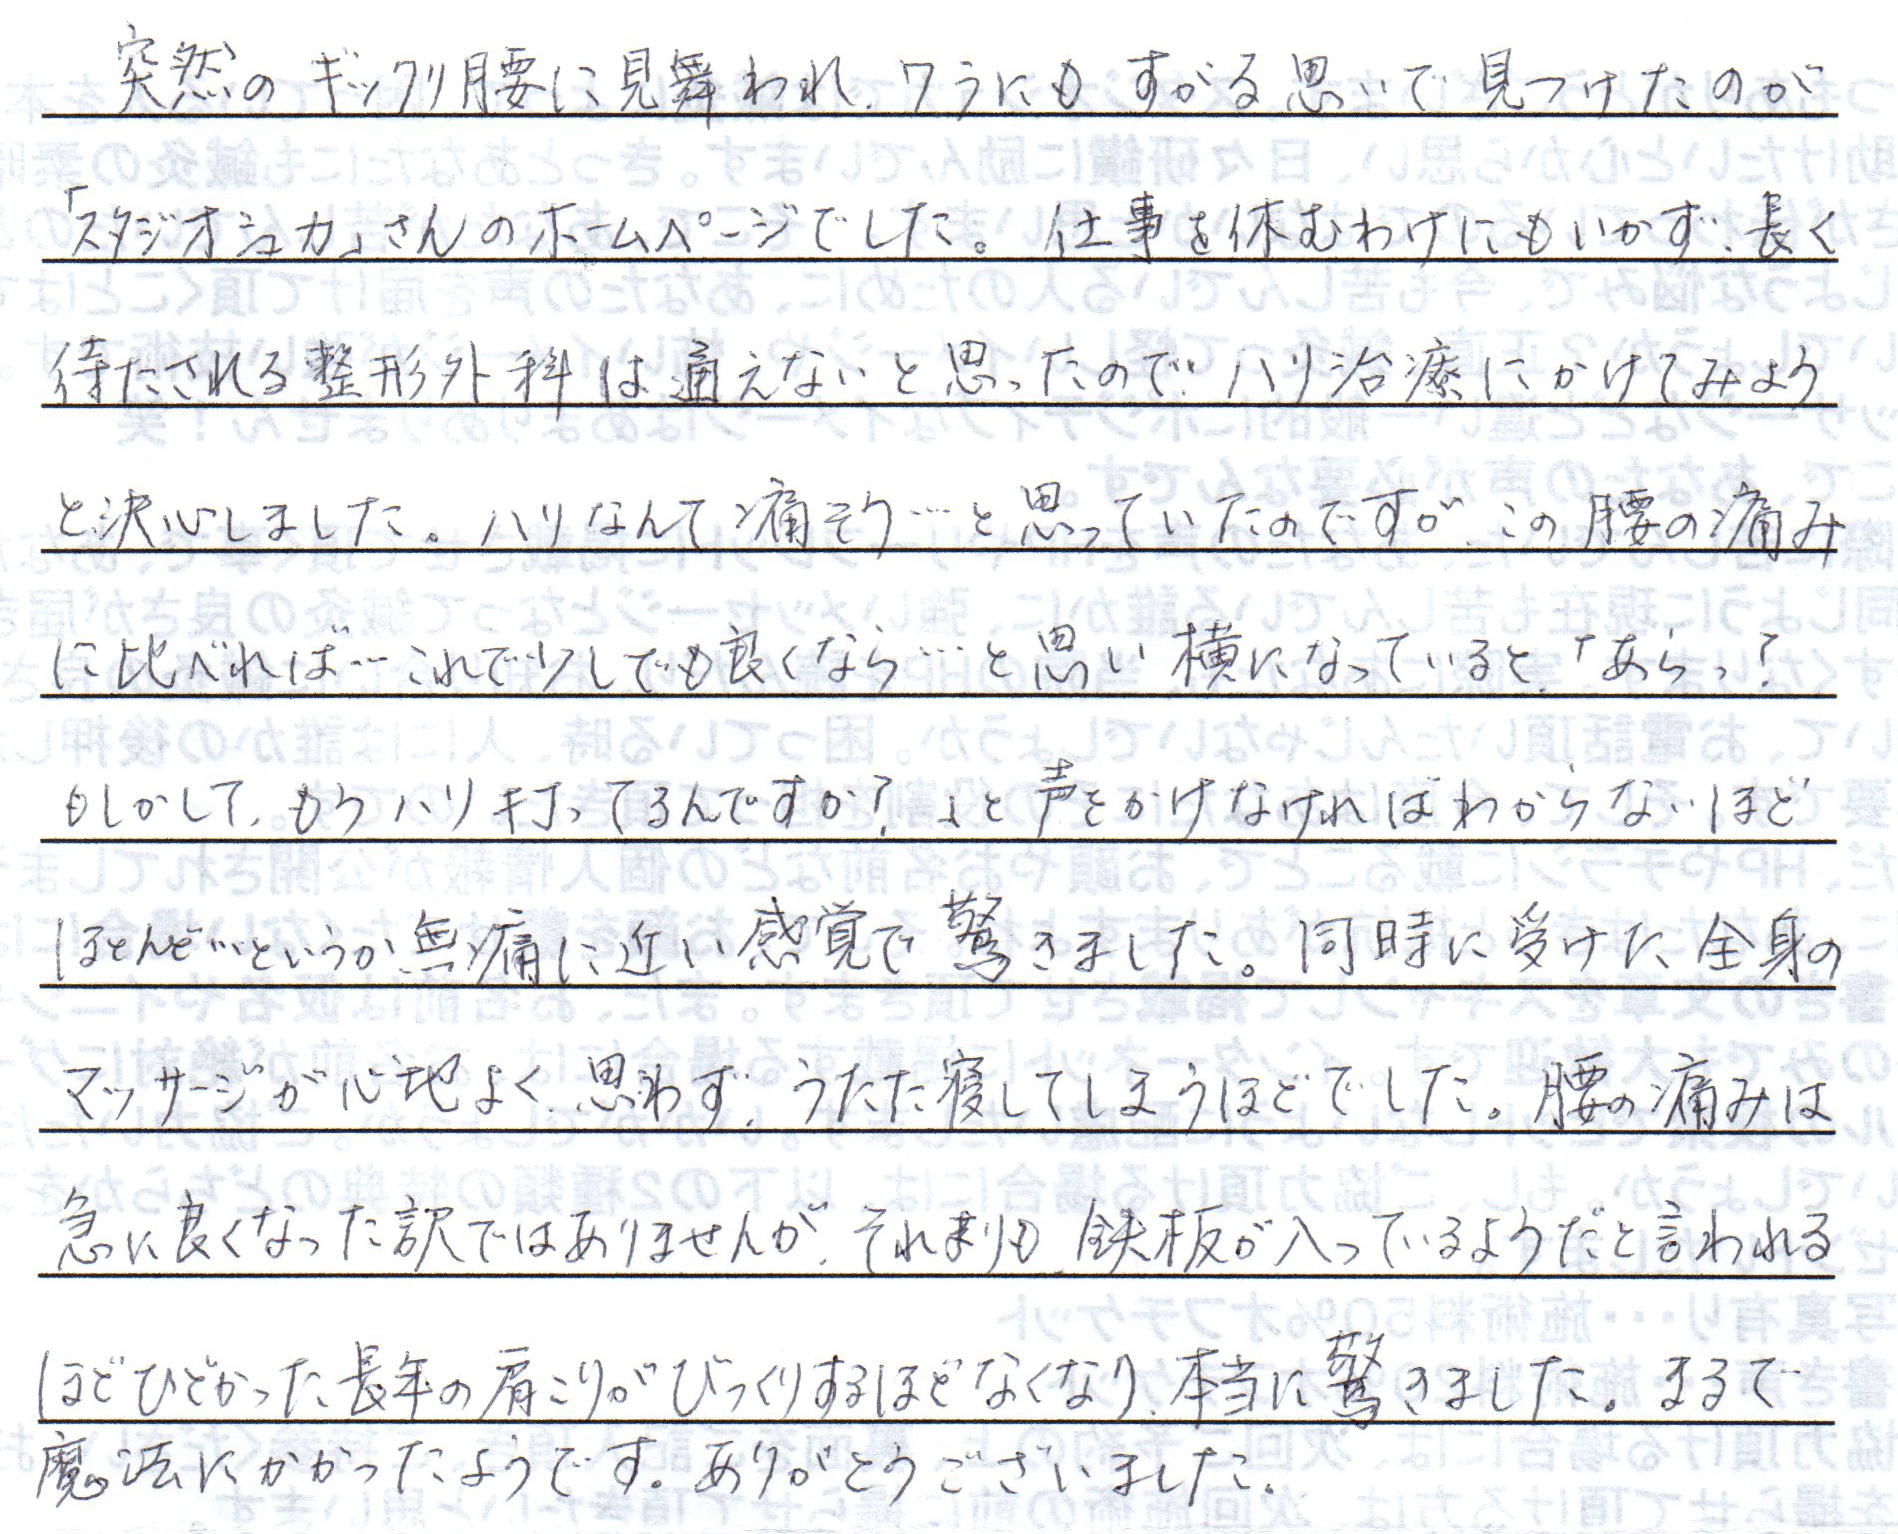 突然のギックリ腰に見舞われ、ワラにもすがる思いで見つけたのが
「スタジオシュカ」さんのホームページでした。仕事を休むわけにもいかず、長く
待たされる整形外科は通えないと思ったので、ハリ治療にかけてみよう
と決心しました。ハリなんて痛そう…と思っていたのですが、この腰の痛み
に比べれば…これで少しでも良くなら…と思い横になっていると、「あらっ?
もしかして、もうハリ打ってるんですか?」と声をかけなければわからないほど
ほとんど…というか無痛に近い感覚で驚きました。同時に受けた全身の
マッサージが心地よく、思わず、うたた寝してしまうほどでした。腰の痛みは
急に良くなった訳ではありませんが、それよりも、鉄板が入っているようだと言われる
ほどひどかった長年の肩こりがびっくりするほどなくなり、本当に驚きました。まるで
魔法にかかったようです。ありがとうございました。